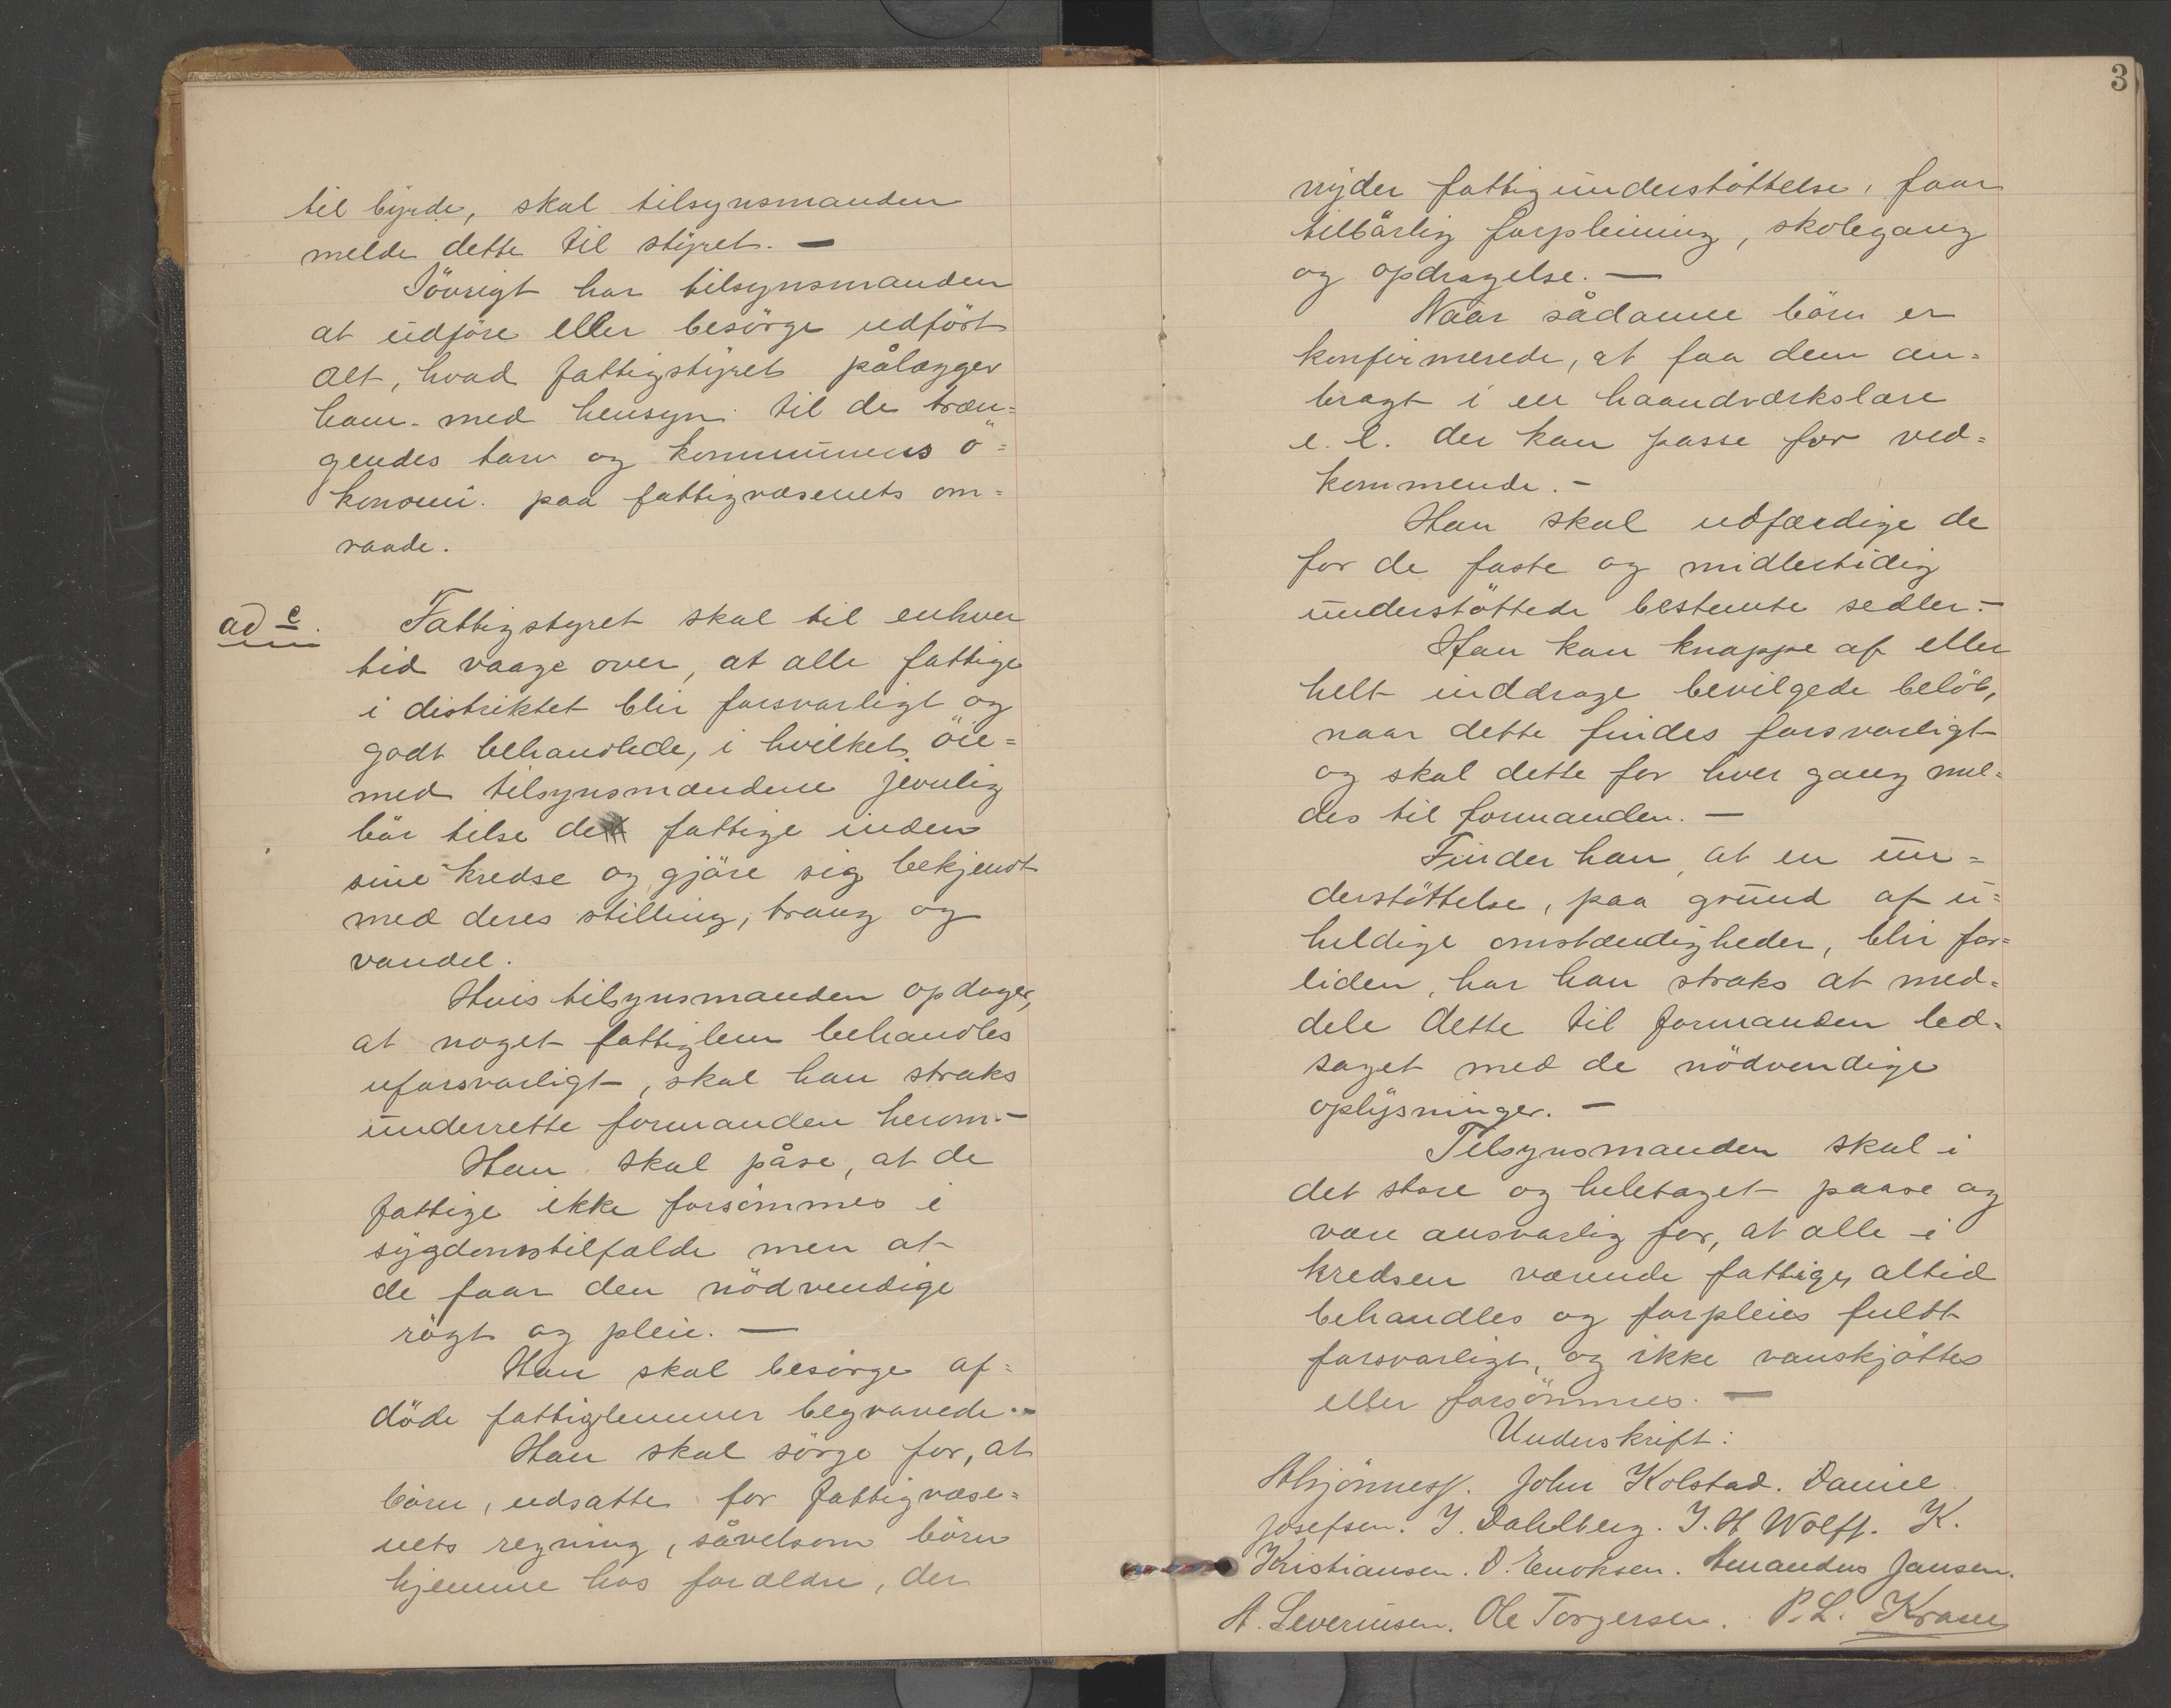 til byrde, skal tilsynsmanden
melde dette til styret. —
Iövrigt har tilsynsmanden
at udföre eller besörge udfört
alt, hvad fattigstyret pålægger
ham med hensyn til de træn=
gendes tarv og kommunens ö=
konomi paa fattigvæsenets om=
raade.
ad c.
Fattigstyret skal til enhver
tid vaage over, at alle fattige
i distriktet blir forsvarligt og
godt behandlede, i hvilket öie=
med tilsynsmændene jevnlig
bör tilse de fattige inden
sine kredse og gjöre sig bekjendt
med deres stilling, trang og
vandel.
Hvis tilsynsmanden opdager,
at noget fattiglem behandles
uforsvarligt, skal han straks
underrette formanden herom.—
Han skal påse, at de
fattige ikke forsömmes i
sygdomstilfælde men at
de faar den nödvendige
rögt og pleie. —
Han skal besörge af=
döde fattiglemmer begravede.—
Han skal sörge for, at
börn, udsatte for fattigvæse=
nets regning, såvelsom börn
hjemme hos forældre, der
3
nyder fattigunderstöttelse, faar
tilbörlig forpleining, skolegang
og opdragelse. —
Naar sådanne börn er
konfirmerede, at faa dem an=
bragt i en haandværkslære
e. l. der kan passe for ved=
kommende. —
Han skal udfærdige de
for de faste og midlertidig
understöttede bestemte sedler.—
Han kan knappe af eller
helt inddrage bevilgede belöb,
naar dette findes forsvarligt
og skal dette for hver gang mel=
des til formanden. —
Finder han, at en un=
derstöttelse, paa grund af u=
heldige omstændigheder, blir for=
liden, har han straks at med=
dele dette til formanden led=
saget med de nödvendige
oplysninger. —
Tilsynsmanden skal i
det store og heletaget paase og
være ansvarlig for, at alle i
kredsen værende fattige, altid
behandles og forpleies fuldt
forsvarligt, og ikke vanskjöttes
eller forsömmes. —
Underskrift:
John Kolstad. Daniel
Josefsen. J. Dahlberg. J. H Wolff. K.
Kristiansen. D. Enoksen. Amandus Jansen.
A. Severinsen. Ole Torgersen. P. L. Krane